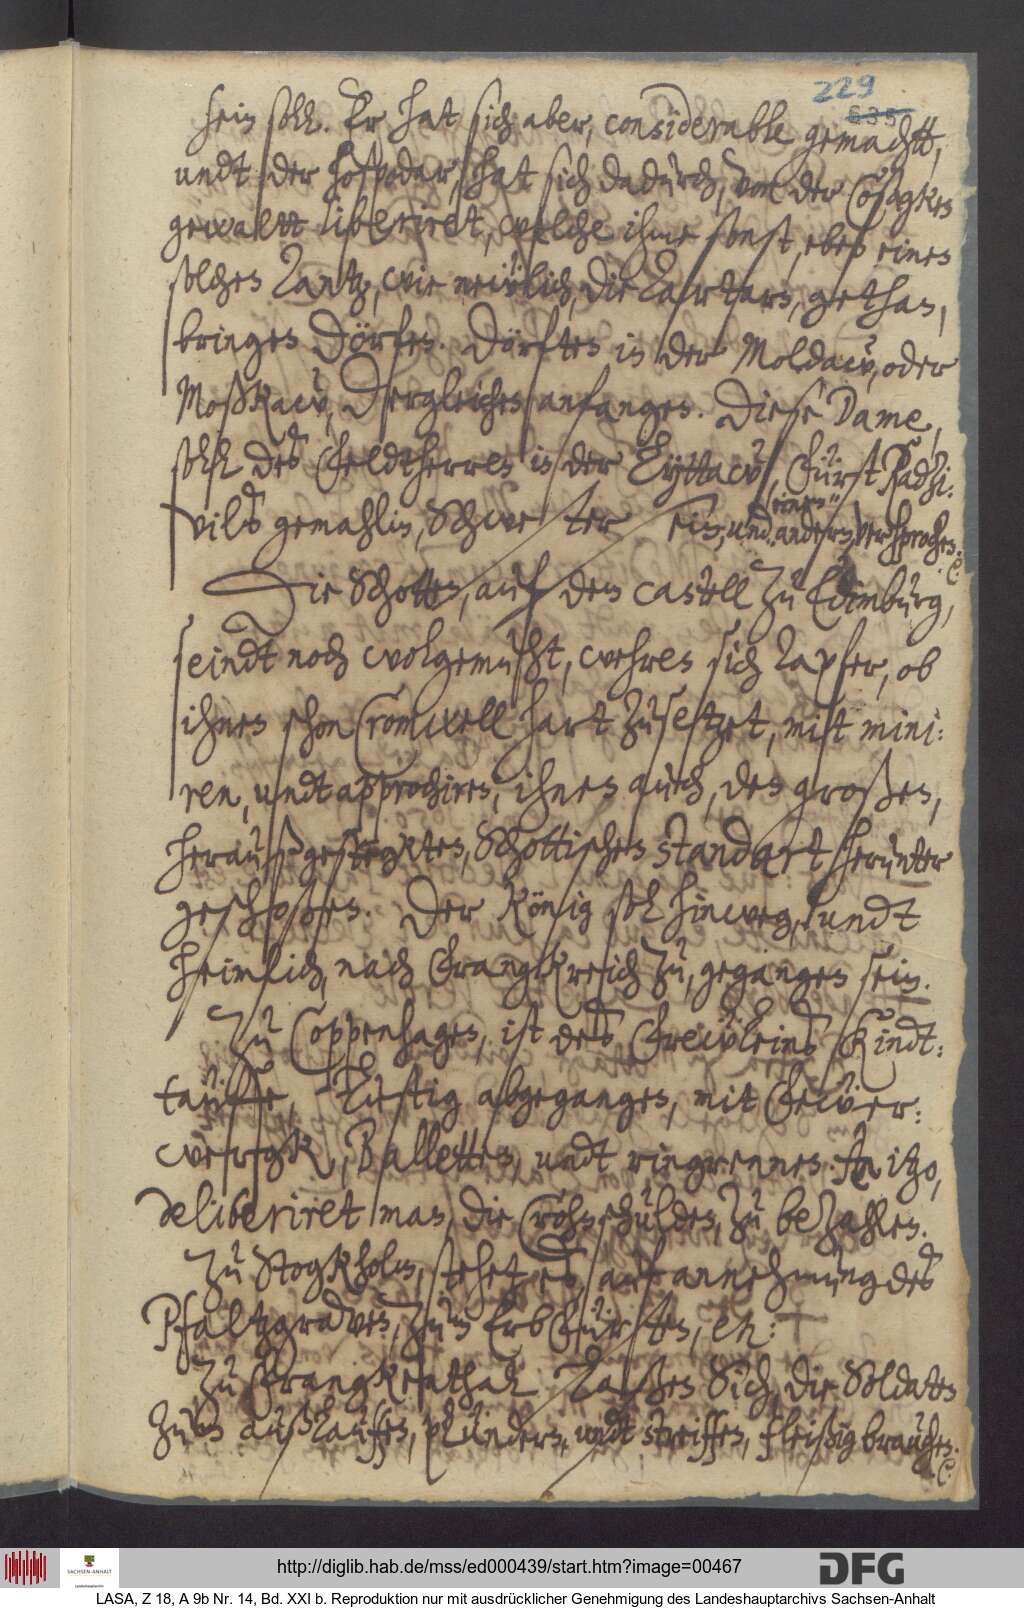 229
635
sein soll. Er hat sich aber, considerable gemachtt,
undt der Hospodar, hat sich dadurch, von der Cosagken
gewaltt liberiret, welche ihme sonst, eben einen
solchen Tantz, wie newlich, die Tartarn, gethan,
bringen dörfen. Dörften in der Moldaw, oder
Moßkaw, dergleichen anfangen. Diese Dame,
soll des Feldtherren in der Lyttaw, Fürst Radzi:
vils gemahlin, Schwester sein, und einem andern, versprochen. etc.
Die Schotten, auf dem castell zu Edimburg,
seindt noch wolgemuht, wehren sich tapfer, ob
ihnen schon Cromwell hart zusetzet, mitt mini:
ren, undt approchiren, ihnen auch, den großen,
heraußgestegkten, Schottischen standart herunter
geschoßen. Der König sol hinweg, undt
heimlich, nach Frangkreich zu, gegangen sein.
Zu Coppenhagen, ist des Frewleins Kindt:
tauffe, lustig abgegangen, mit Fewer:
wergk, Balletten, undt ringrennen. An itzo,
deliberiret man, die Crohnschulden, zu bezahlen.
Zu Stogkholm, stehet es, auf annehmung des
Pfaltzgraven, zum ErbFürsten, etc:
Zu Frangkenthal laßen Sich, die Soldaten
zum außlauffen, plündern, undt streiffen, fleißig brauchen. etc.
http://diglib.hab.de/mss/ed000439/start.htm?image=00467
SACHSEN-ANHALT
DFG
LASA, Z 18, A 9b Nr. 14, Bd. XXI b. Reproduktion nur mit ausdrücklicher Genehmigung des Landeshauptarchivs Sachsen-Anhalt